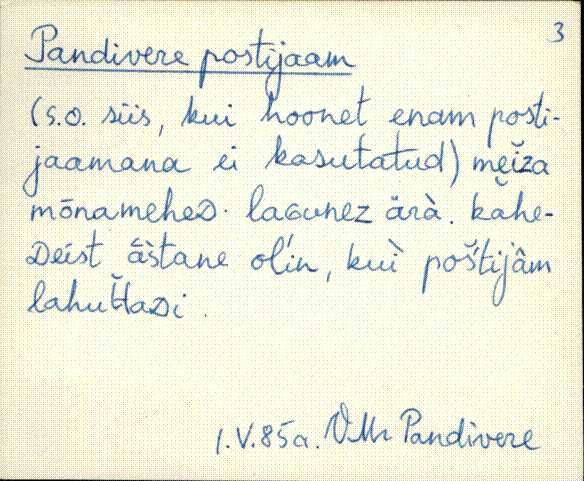 3
Pandivere postijaam
(s.o. siis, kui hoonet enam posti-
jaamana ei kasutatud) mẽĭza
mōnameheᴅ. laɢunez ärà. kahe-
ᴅeist ǟ̀stane oĺin, kuì̮ poš́tijâm
lahuttaᴅi.
1.V.85a. VMr Pandivere